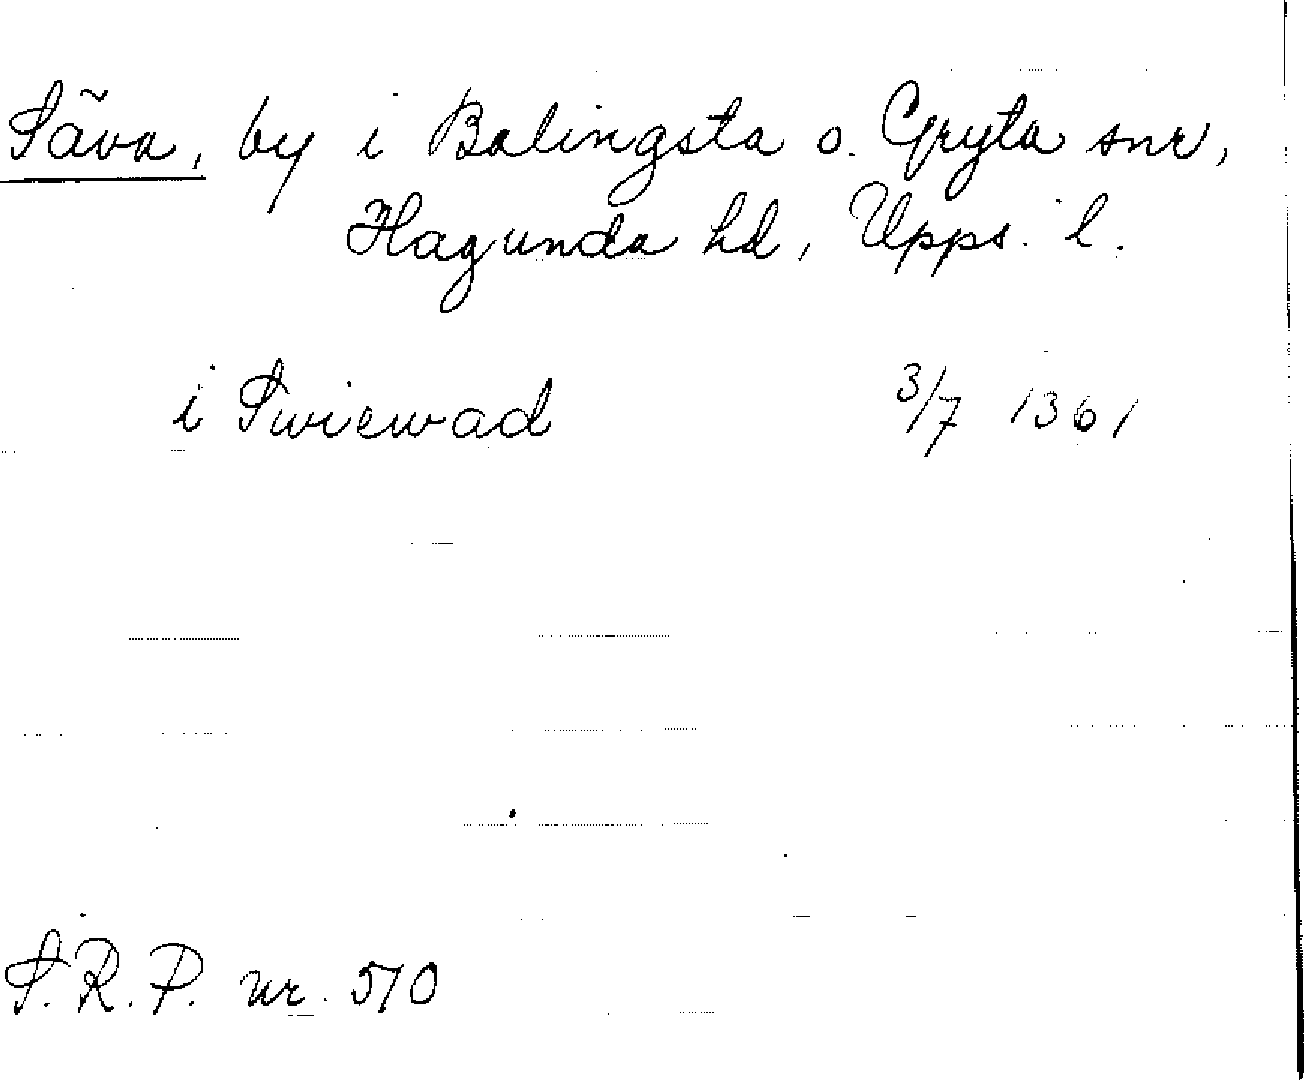 Säva, by i Balingsta o. Gryta snr,
Hagunda hd, Upps. l.
i Swiewad 3/7 1361
S.R.P. nr. 510